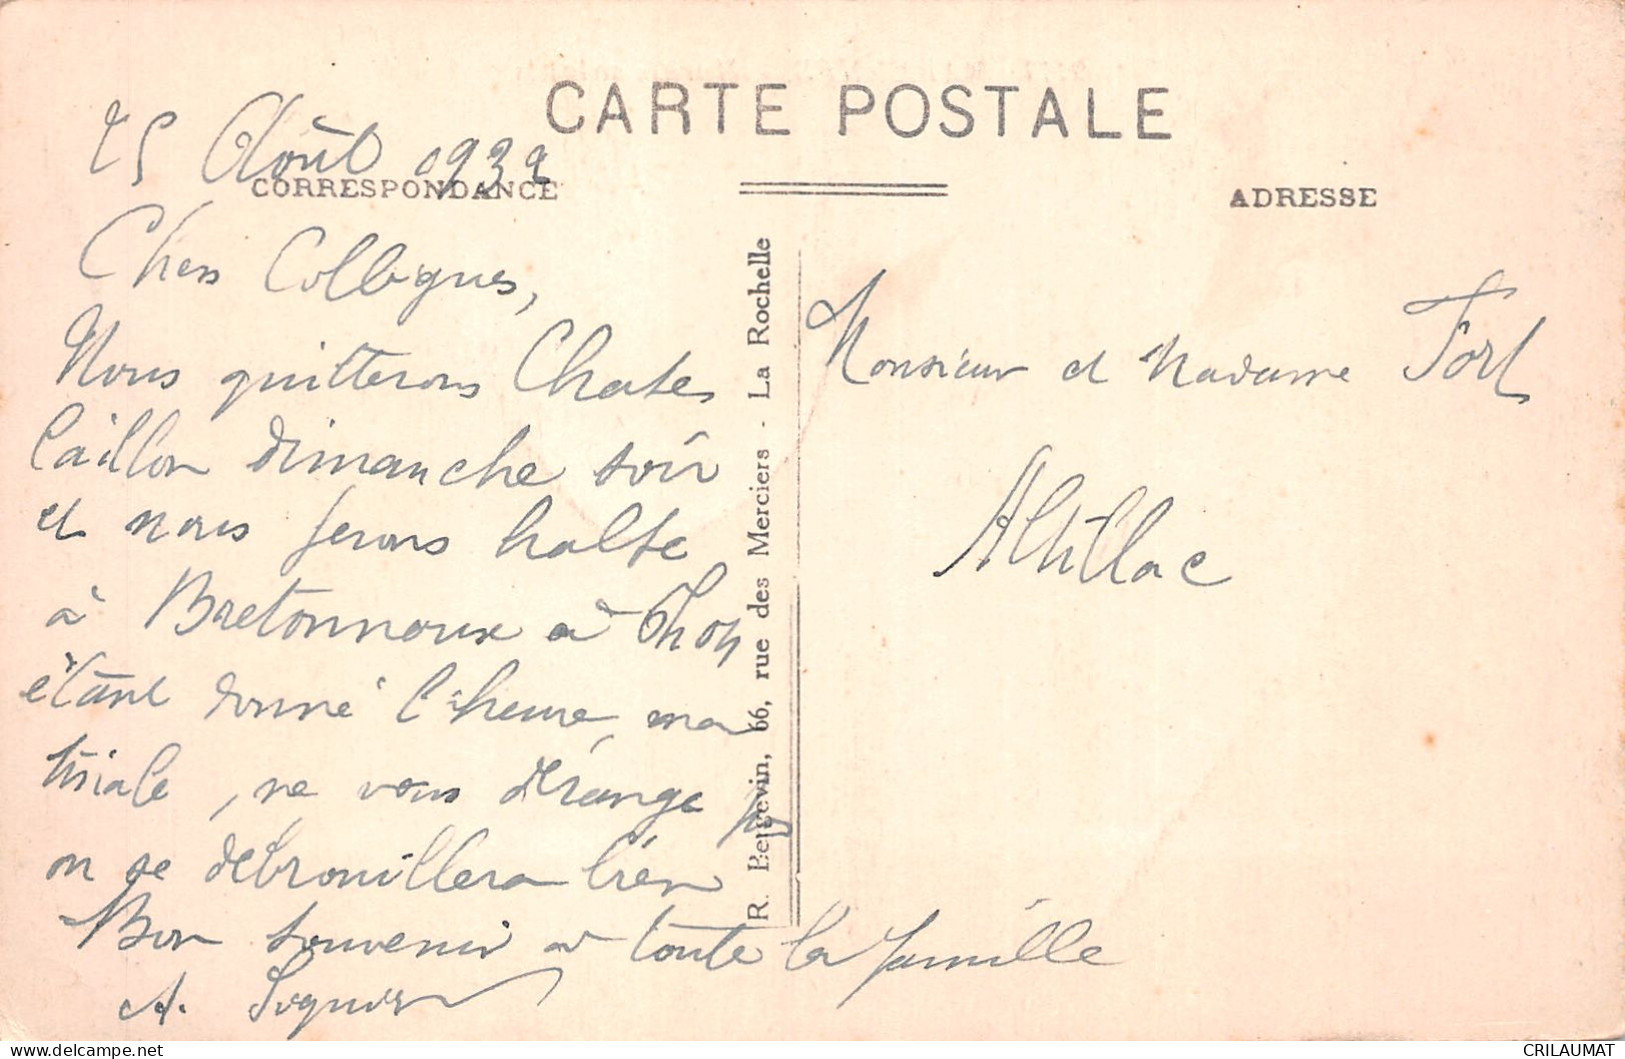 CARTE POSTALE
25 Août 1932
CORRESPONDANCE
ADRESSE
Chers Collègues,
Nous quitterons Chate
laillon dimanche soir
et nous ferons halte
à Bretonnoux à
étant donné l'heure, ma
tiniale, ne vous dérange pas
on se débrouillera bien
Bon souvenir à toute la famille
A.
R. Bergevin, 66, rue des Merciers - La Rochelle
Monsieur et Madame Fort
Altillac
CRILAUMAT